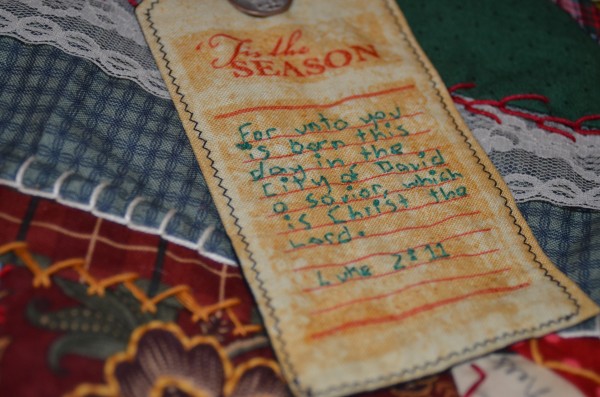 'Tis the
SEASON
For unto you
is born this
day in the
City of David
a Savior, which
is Christ the
Lord.
Luke 2:11